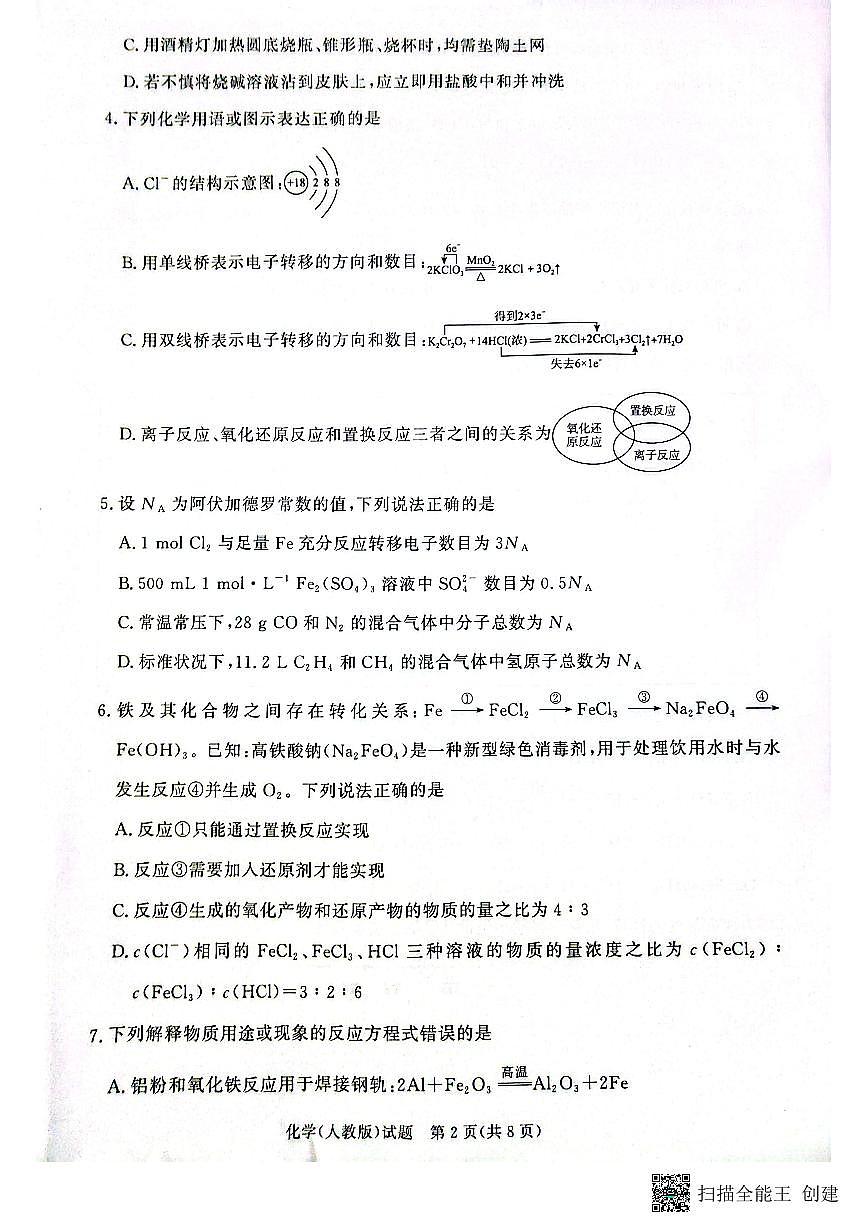 C. 用酒精灯加热圆底烧瓶、锥形瓶、烧杯时,均需垫陶土网
D. 若不慎将烧碱溶液沾到皮肤上,应立即用盐酸中和并冲洗
4. 下列化学用语或图示表达正确的是
A. Cl⁻ 的结构示意图: +18 2 8 8
B. 用单线桥表示电子转移的方向和数目: 6e⁻ 2KClO₃ MnO₂ ══ △ 2KCl + 3O₂↑
C. 用双线桥表示电子转移的方向和数目: 得到2×3e⁻ K₂Cr₂O₇ +14HCl(浓) ══ 2KCl+2CrCl₃+3Cl₂↑+7H₂O 失去6×1e⁻
D. 离子反应、氧化还原反应和置换反应三者之间的关系为 氧化还原反应 置换反应 离子反应
5. 设 N_A 为阿伏加德罗常数的值,下列说法正确的是
A. 1 mol Cl₂ 与足量 Fe 充分反应转移电子数目为 3N_A
B. 500 mL 1 mol·L⁻¹ Fe₂(SO₄)₃ 溶液中 SO₄²⁻ 数目为 0.5N_A
C. 常温常压下,28 g CO 和 N₂ 的混合气体中分子总数为 N_A
D. 标准状况下,11.2 L C₂H₄ 和 CH₄ 的混合气体中氢原子总数为 N_A
6. 铁及其化合物之间存在转化关系: Fe ①→ FeCl₂ ②→ FeCl₃ ③→ Na₂FeO₄ ④→
Fe(OH)₃。已知:高铁酸钠(Na₂FeO₄)是一种新型绿色消毒剂,用于处理饮用水时与水
发生反应④并生成 O₂。下列说法正确的是
A. 反应①只能通过置换反应实现
B. 反应③需要加入还原剂才能实现
C. 反应④生成的氧化产物和还原产物的物质的量之比为 4∶3
D. c(Cl⁻)相同的 FeCl₂、FeCl₃、HCl 三种溶液的物质的量浓度之比为 c(FeCl₂)∶
c(FeCl₃)∶c(HCl)=3∶2∶6
7. 下列解释物质用途或现象的反应方程式错误的是
A. 铝粉和氧化铁反应用于焊接钢轨: 2Al+Fe₂O₃ 高温══ Al₂O₃+2Fe
化学(人教版)试题 第 2 页(共 8 页)
扫描全能王 创建